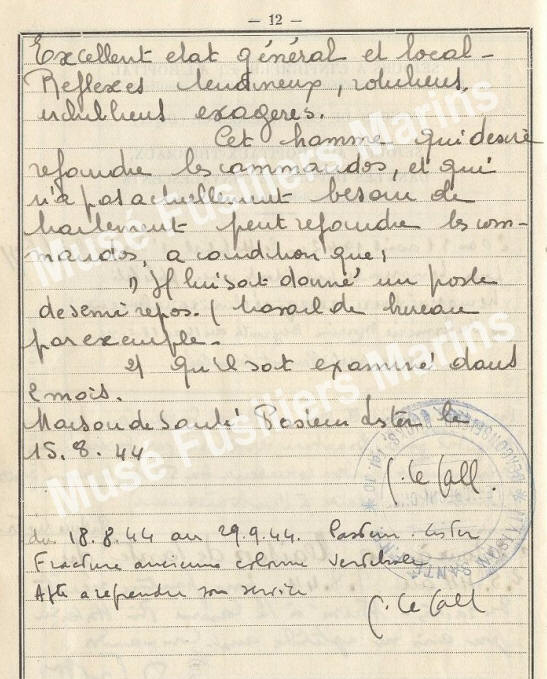 — 12 —
Excellent etat général et local –
Reflexes tendineux, rotuliens,
exagérés.
Cet homme, qui desire
rejoindre les commandos, et qui
n'a pas actuellement besoin de
traitement peut rejoindre les com-
mandos, a condition que;
1) Il lui soit donné un poste
de semi repos. ( travail de bureau
par exemple. –
2) qu'il soit examiné dans
2 mois.
Maison de Santé Pasteur Lister le
15. 8. 44
C. le Gall.
du 18.8.44 au 29.9.44. Pasteur. Lister
Fracture ancienne colonne vertebrale
Apte a reprendre son service
C. le Gall
Musé Fusiliers Marins
Musé Fusiliers Marins